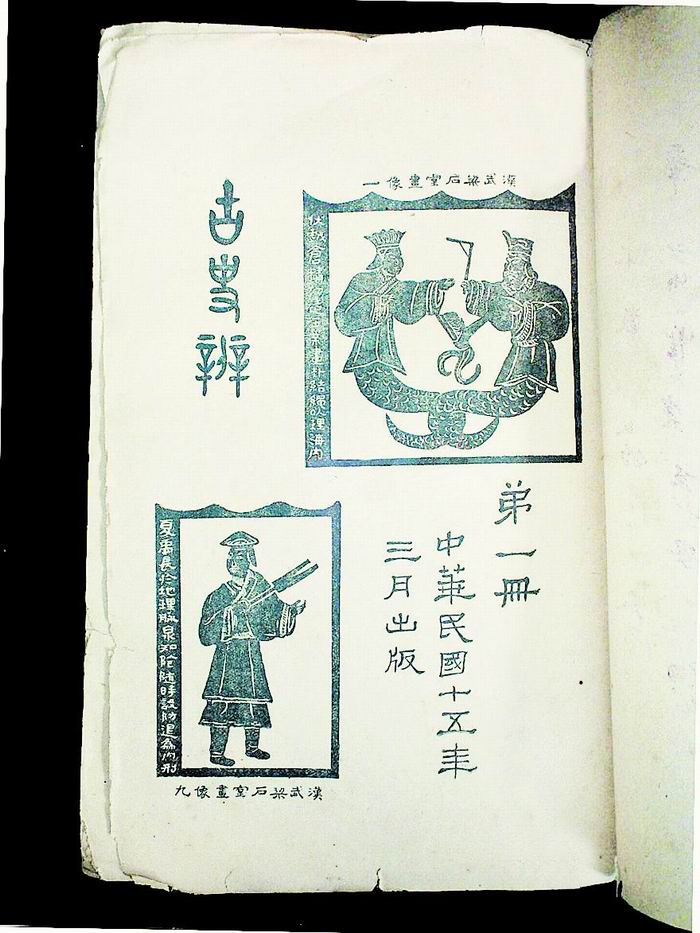 漢武梁石室畫像一
伏戲倉精初造王業畫卦結繩以理海內
古史辨
弟一冊
中華民國十五年
三月出版
夏禹長於地理脉泉知陰隨時設防退為肉刑
漢武梁石室畫像九